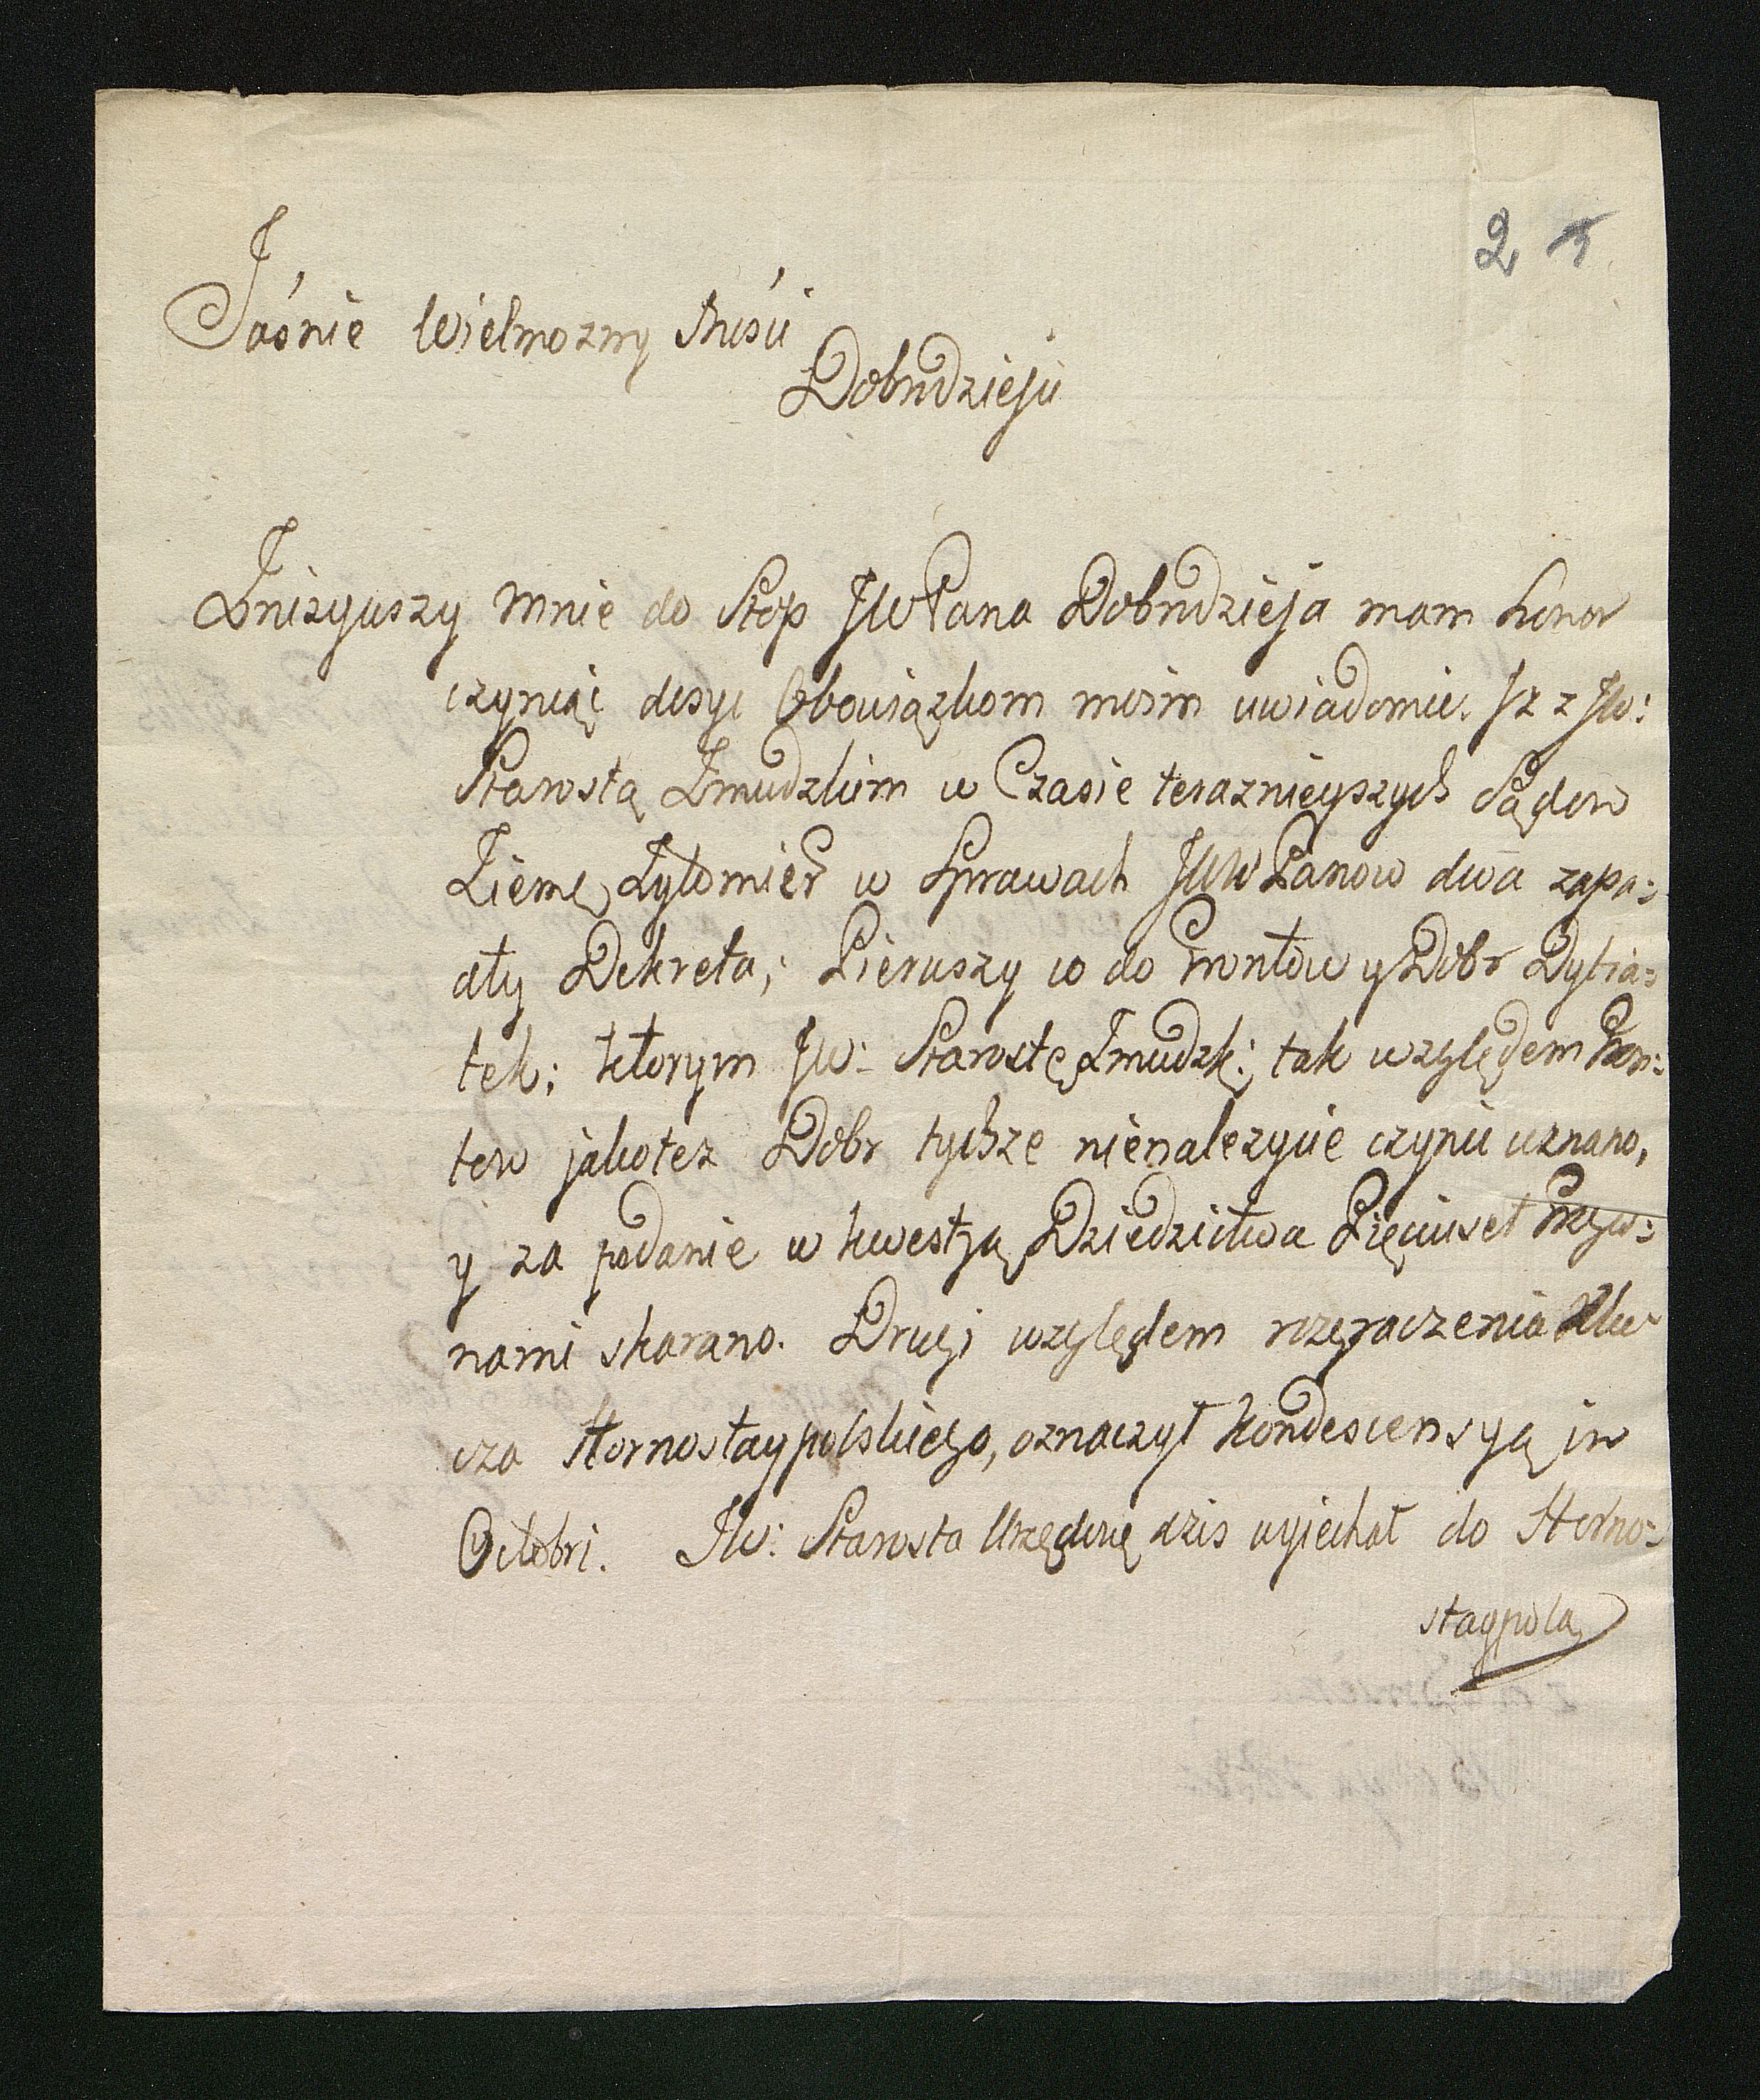 2
Jaśnie Wielmozny Mści
Dobrodzieju
Znizywszy mnie do Stop JWPana Dobrodzieja mam honor
czyniąc dosyc Obowiązkom moim uwiadomic. Jz z JW:
Starostą Zmudzkim w Czasie terazнieyszych Sądow
Ziems Zytomier w Sprawach JWWPanow dwa zapa=
dły Dekreta; Pierwszy co do Grontow y Dobr Dytia=
tek; ktorym JW: Starostę Zmudzk: tak względem Gron=
tow jakotez Dobr tychze nienalezycie czynic uznano,
y za podanie w kwestyą Dziedzictwa Pięciuset Grzyw=
nami skarano. Drugi względem rozgraczenia Klu=
cza Hornostaypolskiego, oznaczył kondescensyą in
Octobri. JW: Starosta Urzędow dzis wyjechał do Horno=
staypola